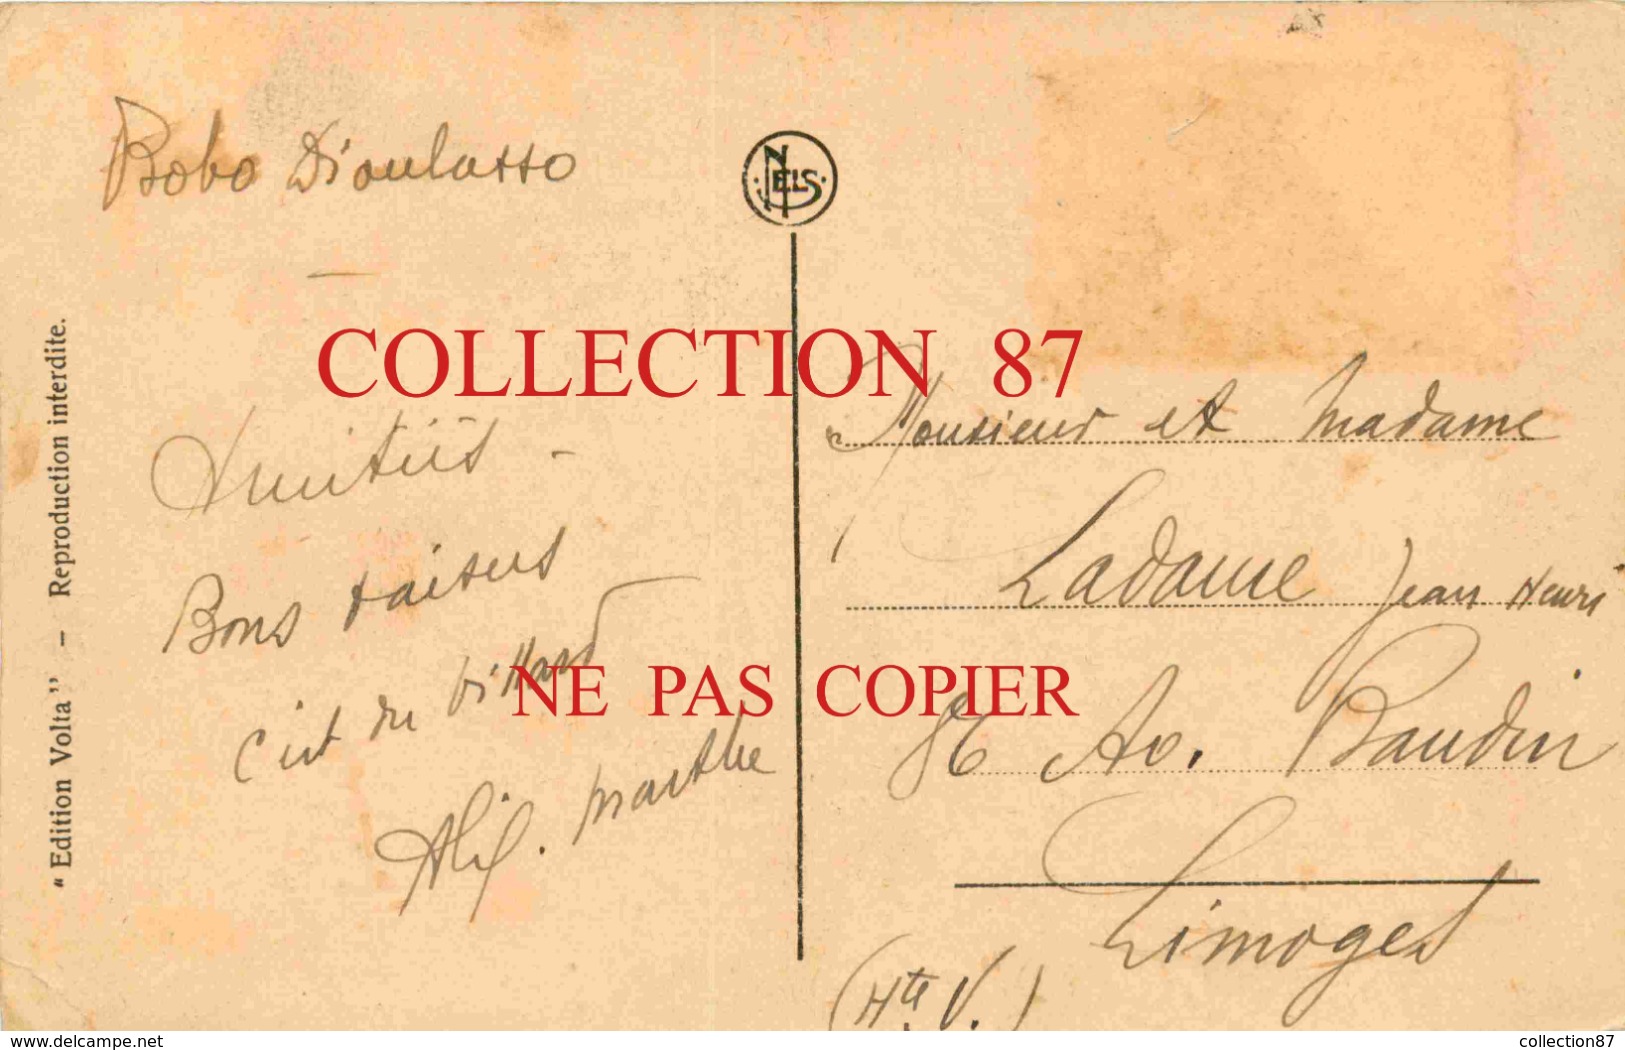 Bobo Dioulasso
NELS
COLLECTION 87
Amitiés -
Bons baisers
c'est du billard
NE PAS COPIER
Alix. Marthe
Monsieur et Madame
Ladame Jean Henri
Av. Baudin
Limoges
(Hte V.)
"Edition Volta" – Reproduction interdite.
www.delcampe.net
collection87